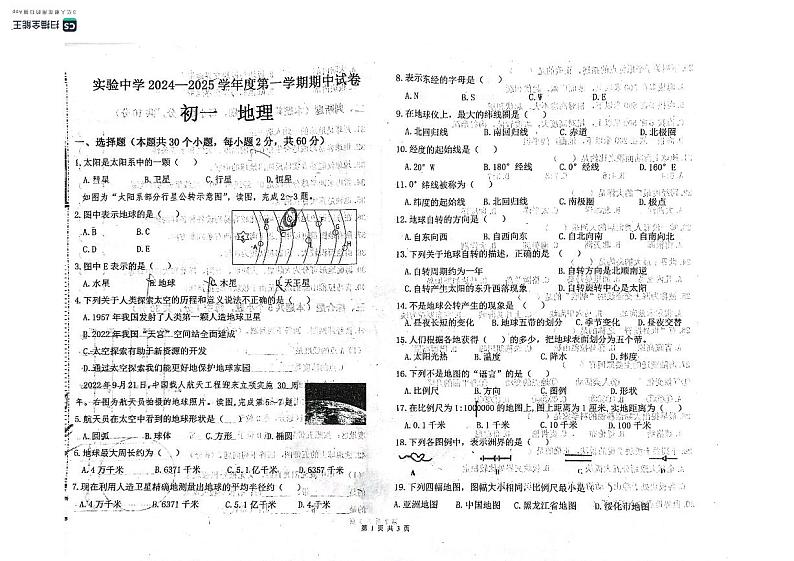 扫描全能王
3亿人都在用的扫描App
实验中学2024—2025学年度第一学期期中试卷
初一 地理
一、选择题（本题共30个小题，每小题2分，共60分）
1.太阳是太阳系中的一颗（ ）
A.彗星 B.卫星 C.行星 D.恒星
如图为“太阳系部分行星公转示意图”，读图，完成2～3题。
2.图中表示地球的是（ ）
A.B B.C
C.D D.E
3.图中E表示的是（ ）
A.水星 B.地球 C.木星 D.天王星
4.下列关于人类探索太空的历程和意义说法不正确的是（ ）
A.1957年我国发射了人类第一颗人造地球卫星
B.2022年我国“天宫”空间站全面建成
C.太空探索有助于新资源的开发
D.通过太空探索我们能更好地保护地球家园
2022年9月21日,中国载人航天工程迎来立项实施30周
年。右图为航天员拍摄的地球照片。读图,完成第5～7题。
5.航天员在太空中看到的地球形状是（ ）
A.圆弧 B.球体 C.方形 D.椭圆
6.地球最大周长约为（ ）
A.4万千米 B.6371千米 C.5.1亿千米 D.6357千米
7.现在利用人造卫星精确地测量出地球的平均半径约（ ）
A.4万千米 B.6371千米 C.5.1亿千米 D.4千米
8.表示东经的字母是（ ）
A.N B.S C.W D.E
9.在地球仪上，最大的纬线圈是（ ）
A.北回归线 B.南回归线 C.赤道 D.北极圈
10.经度的起始线是（ ）
A.20°W B.180°经线 C.0°经线 D.160°E
11.0°纬线被称为（ ）
A.纬度的起始线 B.北回归线 C.南极圈 D.极点
12.地球自转的方向是（ ）
A.自东向西 B.自西向东 C.自北向南 D.自南向北
13.下列关于地球自转的描述，正确的是（ ）
A.自转周期约为一年 B.自转方向是北顺南逆
C.自转产生太阳的东升西落现象 D.自转旋转中心是太阳
14.不是地球公转产生的现象是（ ）
A.昼夜长短的变化 B.地球五带的划分 C.季节变化 D.昼夜交替
15.人们根据各地获得（ ）的多少，把地球表面划分为五个带。
A.太阳光热 B.温度 C.降水 D.纬度
16.下列不是地图的“语言”的是（ ）
A.比例尺 B.方向 C.图例 D.形状
17.在比例尺为1:1000000的地图上,图上距离为1厘米,实地距离为（ ）
A.0.1千米 B.1千米 C.10千米 D.100千米
18.下列各图例中，表示洲界的是（ ）
A B C D
19.下列四幅地图，图幅大小相同，比例尺最小是（ ）
A.亚洲地图 B.中国地图 C.黑龙江省地图 D.绥化市地图
第1页共3页